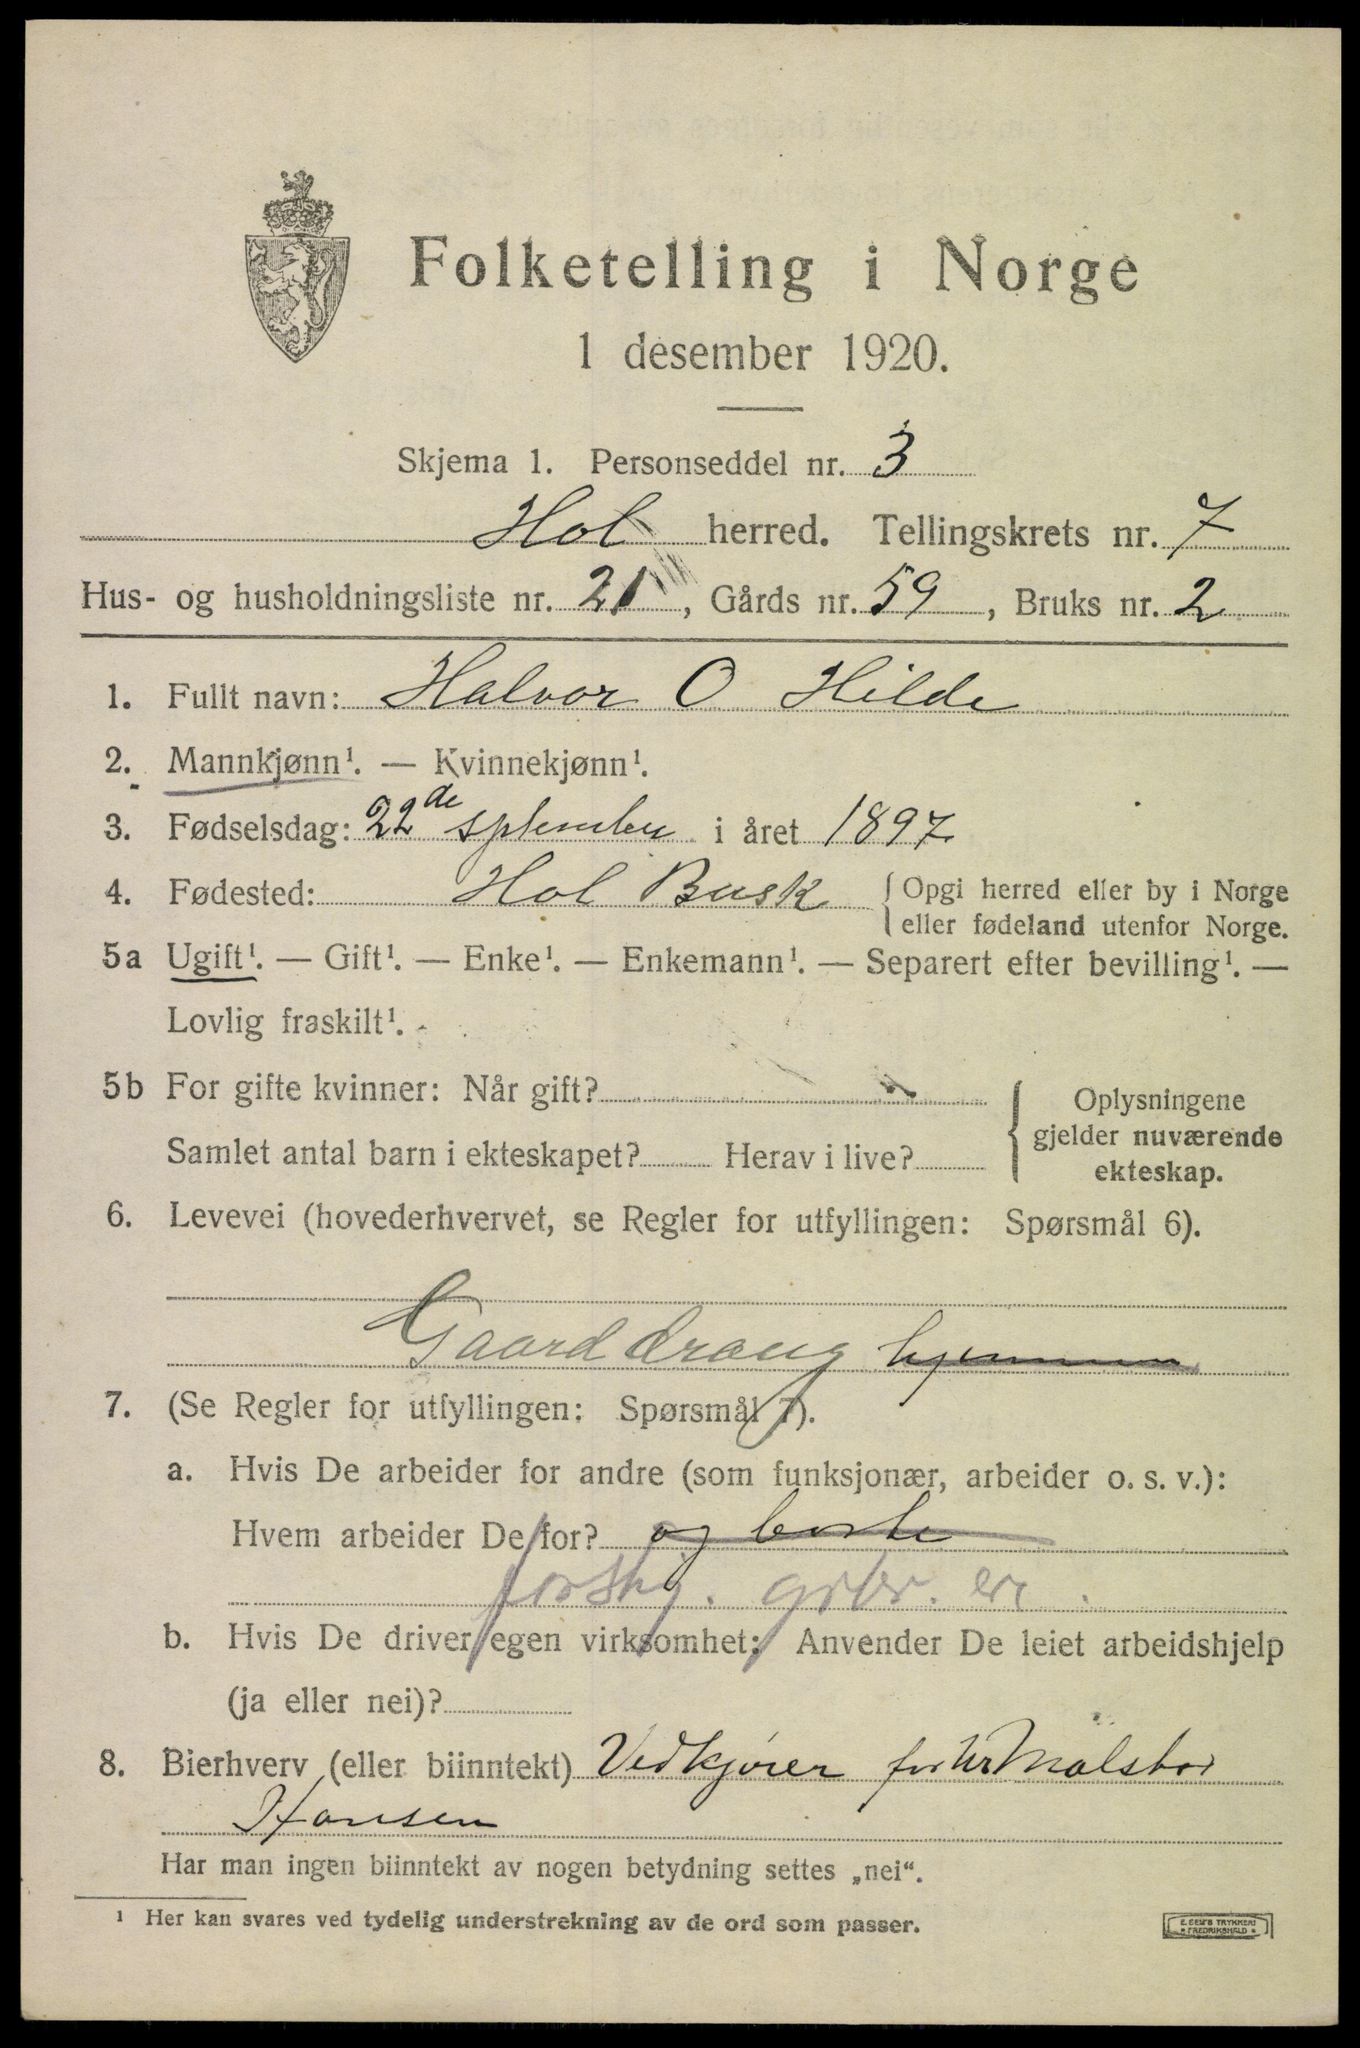 Folketelling i Norge
1 desember 1920.
Skjema 1. Personseddel nr. 3
Hol herred. Tellingskrets nr. 7
Hus- og husholdningsliste nr. 21, Gårds nr. 59, Bruks nr. 2
1. Fullt navn: Halvor O Hilde
2. Mannkjønn¹. — Kvinnekjønn¹.
3. Fødselsdag: 22de september i året 1897
4. Fødested: Hol Busk { Opgi herred eller by i Norge
eller fødeland utenfor Norge.
5a Ugift¹. — Gift¹. — Enke¹. — Enkemann¹. — Separert efter bevilling¹. —
Lovlig fraskilt¹.
5b For gifte kvinner: Når gift?
Samlet antal barn i ekteskapet? Herav i live?
{ Oplysningene
gjelder nuværende
ekteskap.
6. Levevei (hovederhvervet, se Regler for utfyllingen: Spørsmål 6).
Gaarddräng hjemme
7. (Se Regler for utfyllingen: Spørsmål 7).
a. Hvis De arbeider for andre (som funksjonær, arbeider o. s. v.):
Hvem arbeider De for? og borte
forskj. grbr. ere.
b. Hvis De driver egen virksomhet: Anvender De leiet arbeidshjelp
(ja eller nei)?
8. Bierhverv (eller biinntekt) Vedkjører for
Hansen
Har man ingen biinntekt av nogen betydning settes „nei“.
¹ Her kan svares ved tydelig understrekning av de ord som passer.
E. SEM'S TRYKKERI
FREDRIKSHALD